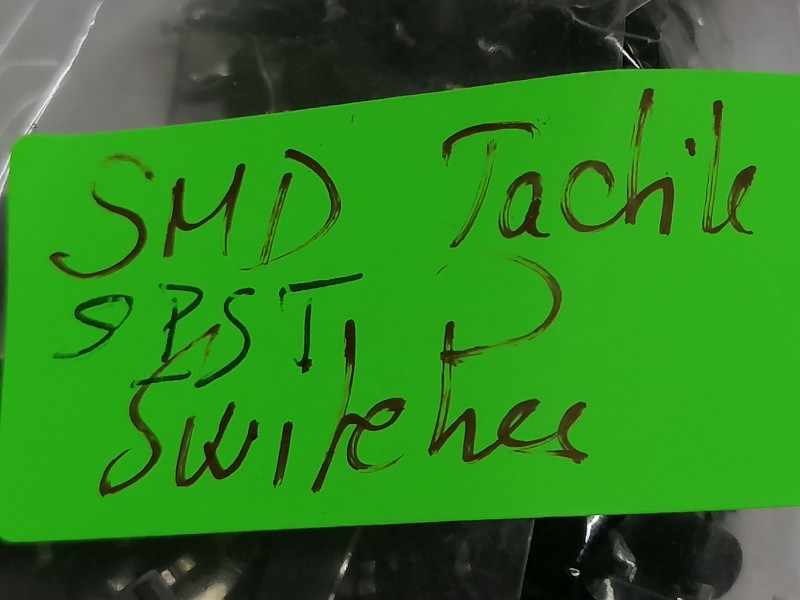 SMD Tactile
SPST
Switches